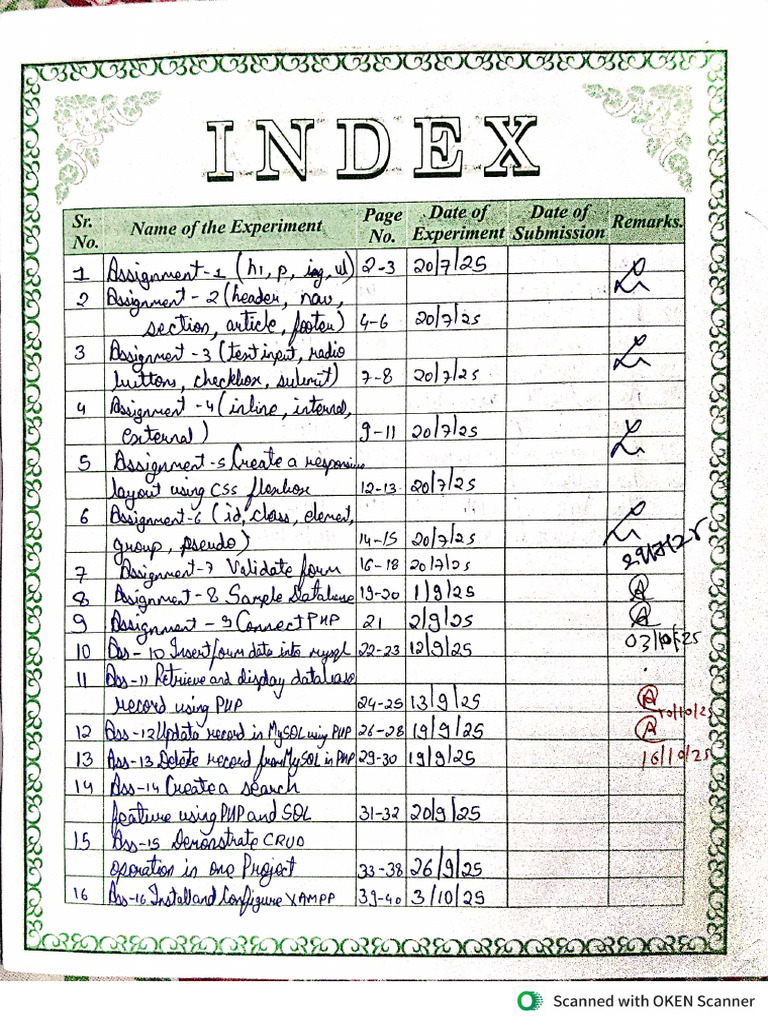 INDEX
Sr. No. Name of the Experiment Page No. Date of Experiment Date of Submission Remarks.
1 Assignment-1 (h1, p, img, ul) 2-3 20/7/25
2 Assignment - 2 (header, nav,
section, article, footer) 4-6 20/7/25
3 Assignment -3 (text input, radio
buttons, checkbox, submit) 7-8 20/7/25
4 Assignment -4 (inline, internal,
external) 9-11 20/7/25
5 Assignment-5 Create a responsive
layout using CSS flexbox 12-13 20/7/25
6 Assignment-6 (id, class, element,
group, pseudo) 14-15 20/7/25
7 Assignment-7 Validate form 16-18 20/7/25
8 Assignment - 8 Sample Database 19-20 1/9/25
9 Assignment - 9 Connect PHP 21 2/9/25
10 Ass-10 Insert form data into mysql 22-23 12/9/25 03/10/25
11 Ass-11 Retrieve and display database
record using PHP 24-25 13/9/25
10/10/25
12 Ass-12 Update record in MySQL using PHP 26-28 19/9/25
13 Ass-13 Delete record from MySQL in PHP 29-30 19/9/25 16/10/25
14 Ass-14 Create a search
feature using PHP and SQL 31-32 20/9/25
15 Ass-15 Demonstrate CRUD
operation in one Project 33-38 26/9/25
16 Ass-16 Install and Configure XAMPP 39-40 3/10/25
Scanned with OKEN Scanner